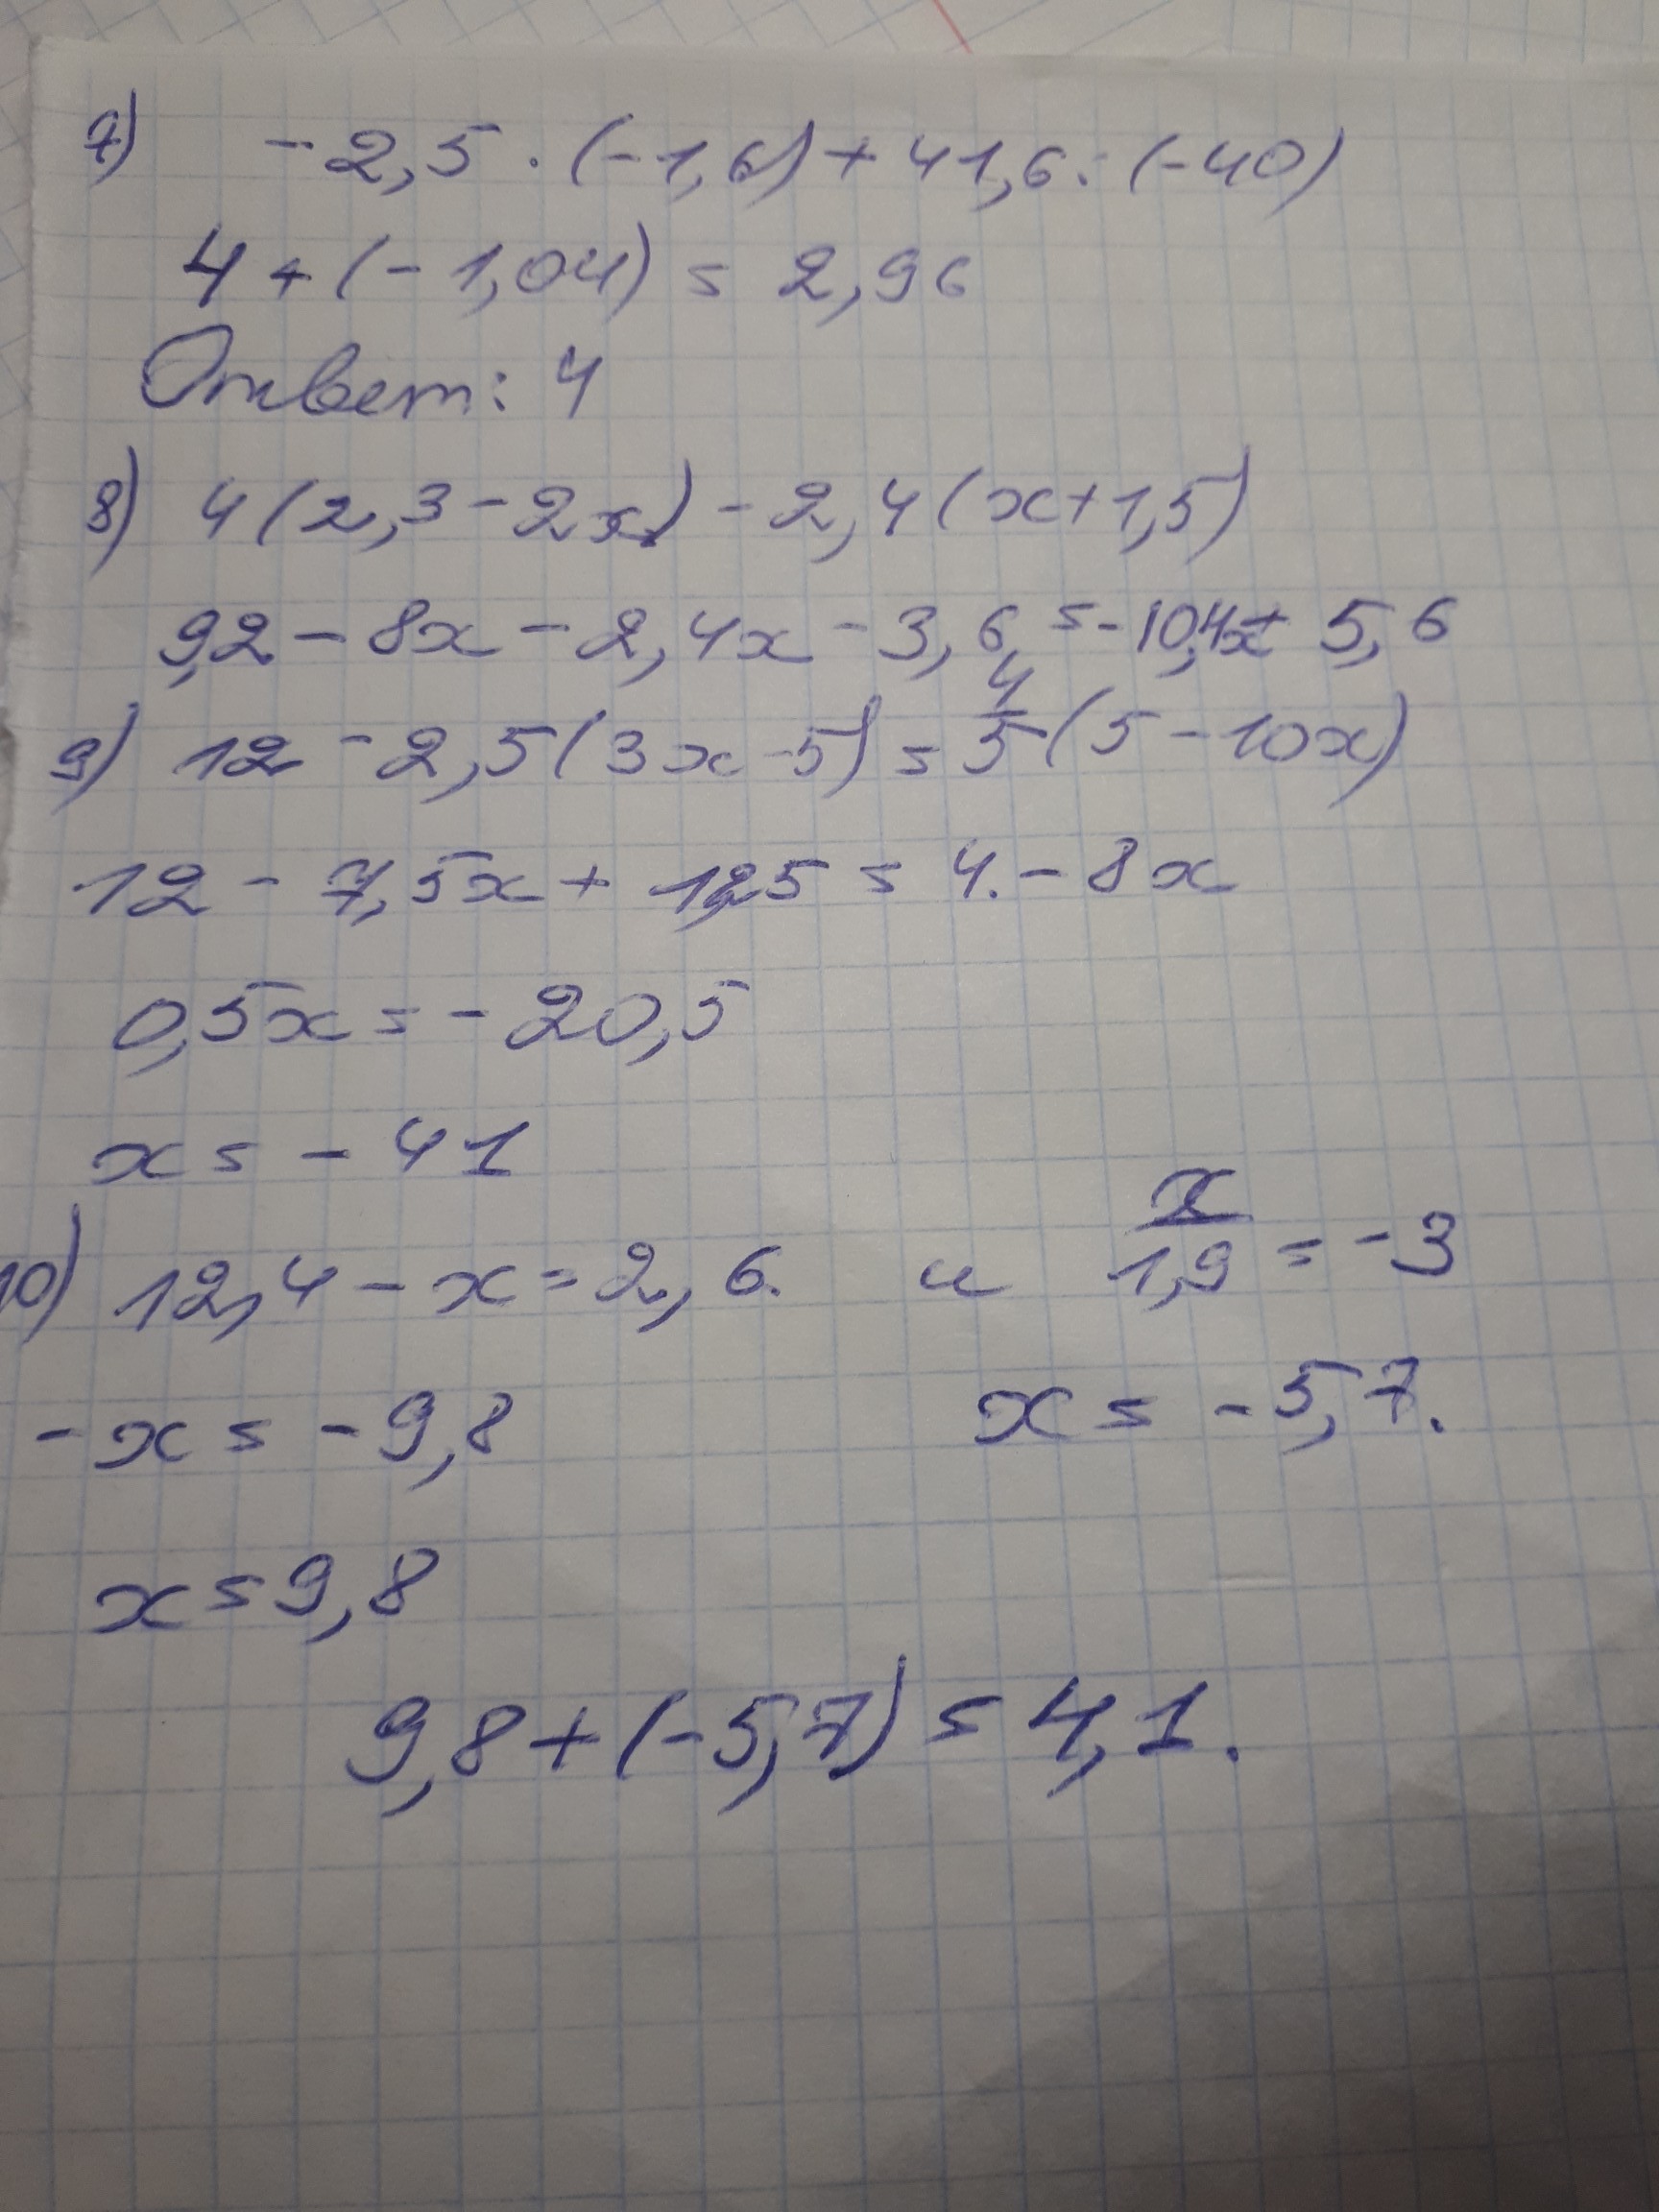 7) -2,5 · (-1,6) + 41,6 : (-40)
4 + (-1,04) = 2,96
Ответ: 4
8) 4(2,3 - 2x) - 2,4(x+1,5)
9,2 - 8x - 2,4x - 3,6 = -10,4x + 5,6
9) 12 - 2,5(3x - 5) = 4/5(5 - 10x)
12 - 7,5x + 12,5 = 4. - 8x
0,5x = - 20,5
x = - 41
10) 12,4 - x = 2,6. и x/1,9 = -3
-x = - 9,8 x = - 5,7.
x = 9,8
9,8 + (-5,7) = 4,1.